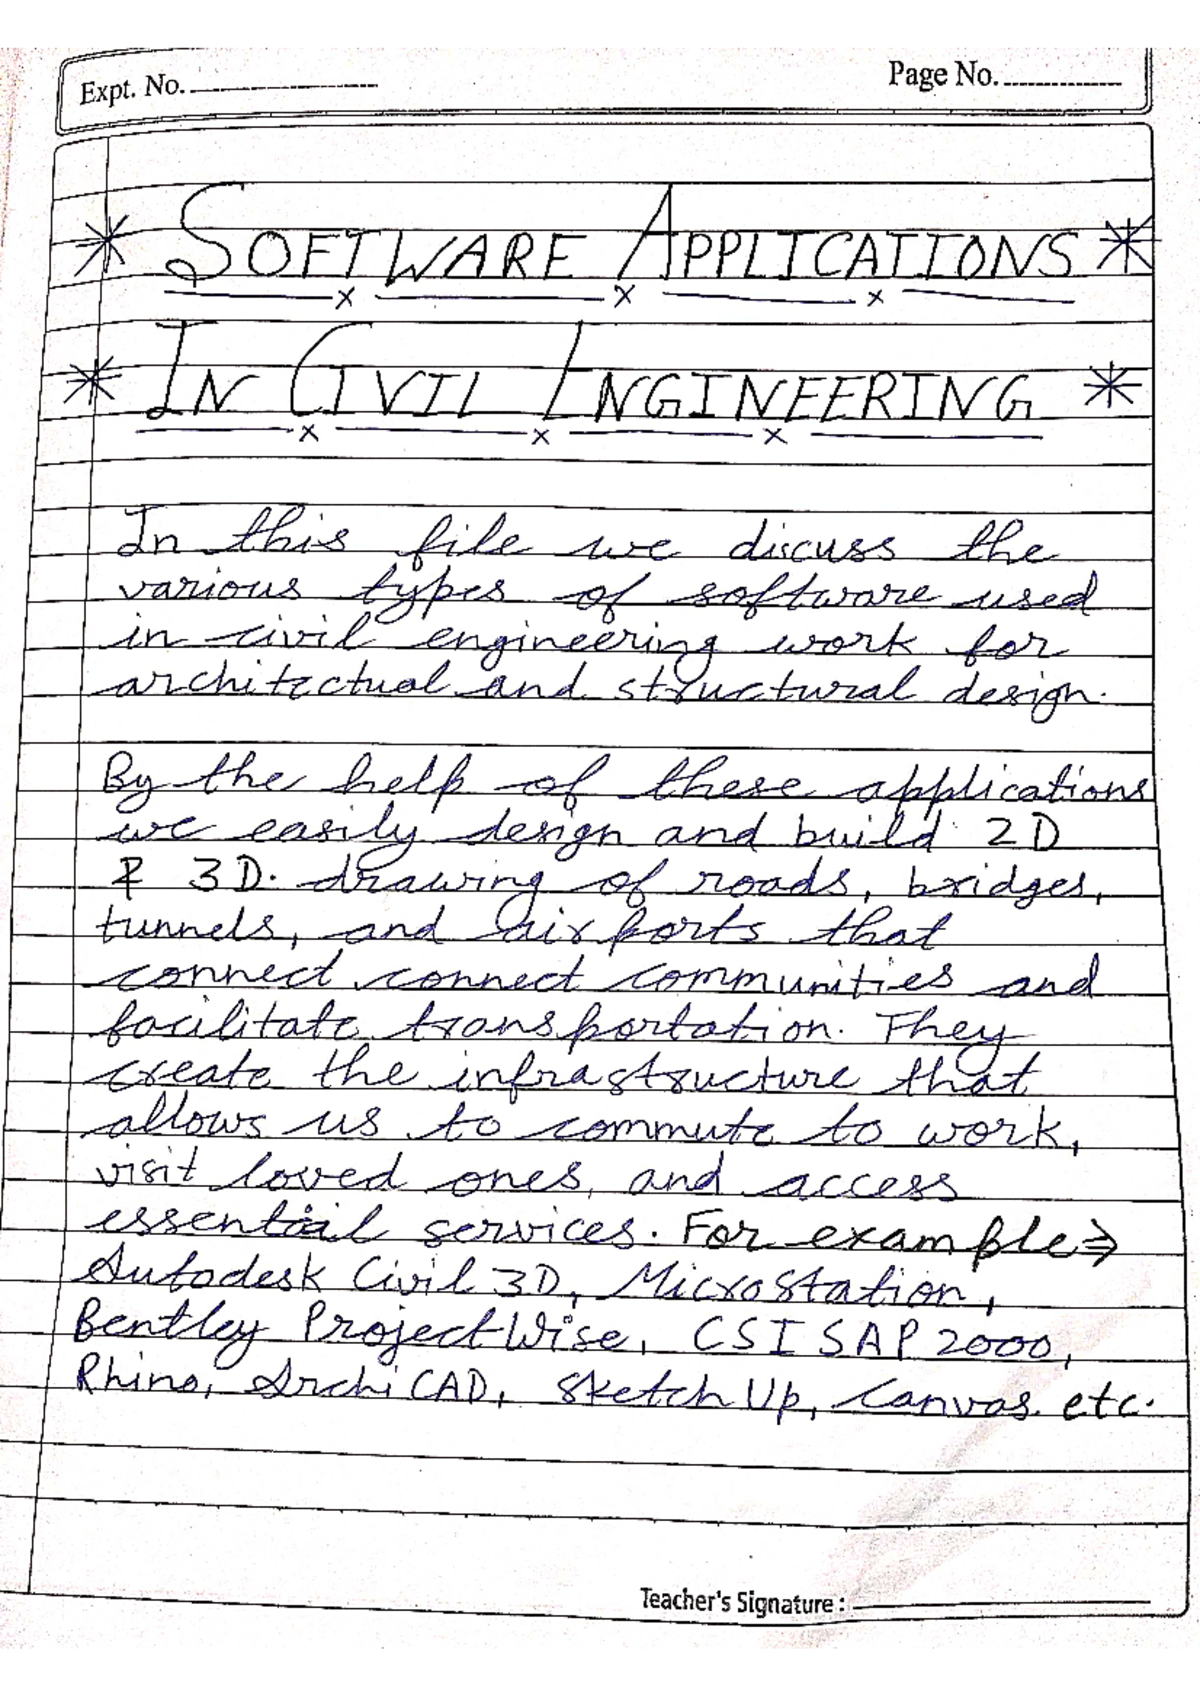 Expt. No.
Page No.
* SOFTWARE APPLICATIONS *
* IN CIVIL ENGINEERING *
In this file we discuss the
various types of software used
in civil engineering work for
architectual and structural design.
By the help of these applications
we easily design and build 2D
& 3D. drawing of roads, bridges,
tunnels, and airports that
connect connect communities and
facilitate transportation. They
create the infrastructure that
allows us to commute to work,
visit loved ones, and access
essential services. For example ⇒
Autodesk Civil 3D, MicroStation,
Bentley ProjectWise, CSI SAP 2000,
Rhino, ArchiCAD, SketchUp, Canvas etc.
Teacher's Signature :